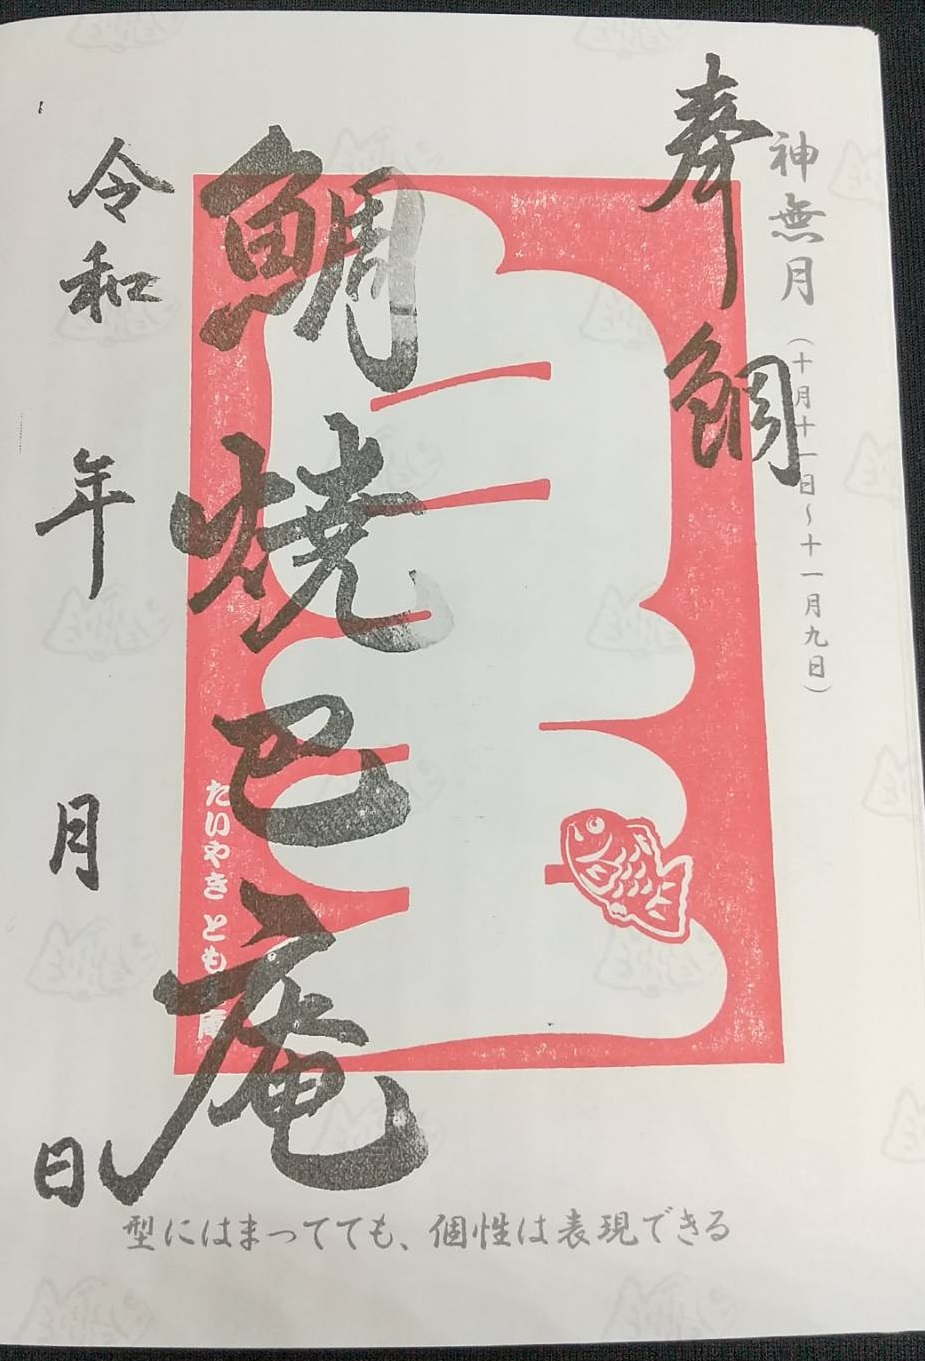 神無月(十月十一日~十一月九日)
奉鯛
鯛焼巴庵
たいやき とも 庵
令和 年 月 日
型にはまってても、個性は表現できる